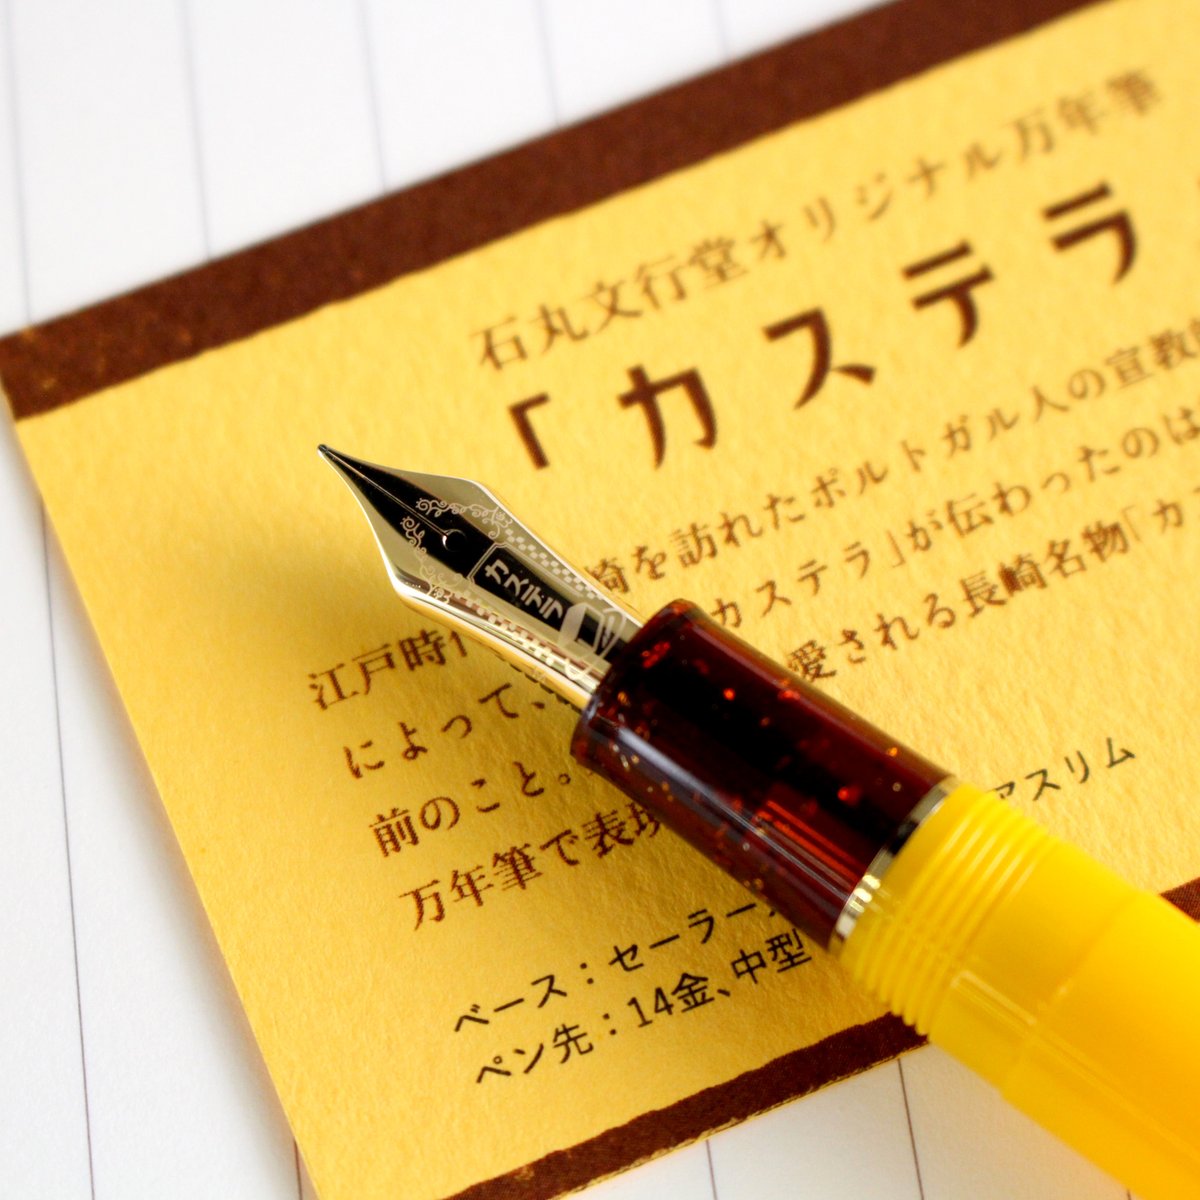 石丸文行堂オリジナル万年筆
「カステラ
江戸時 崎を訪れたポルトガル人の宣教
によって、 カステラ」が伝わったのは
前のこと。 愛される長崎名物「カ
万年筆で表現
ベース：セーラー アスリム
ペン先：14金、中型
カステラ